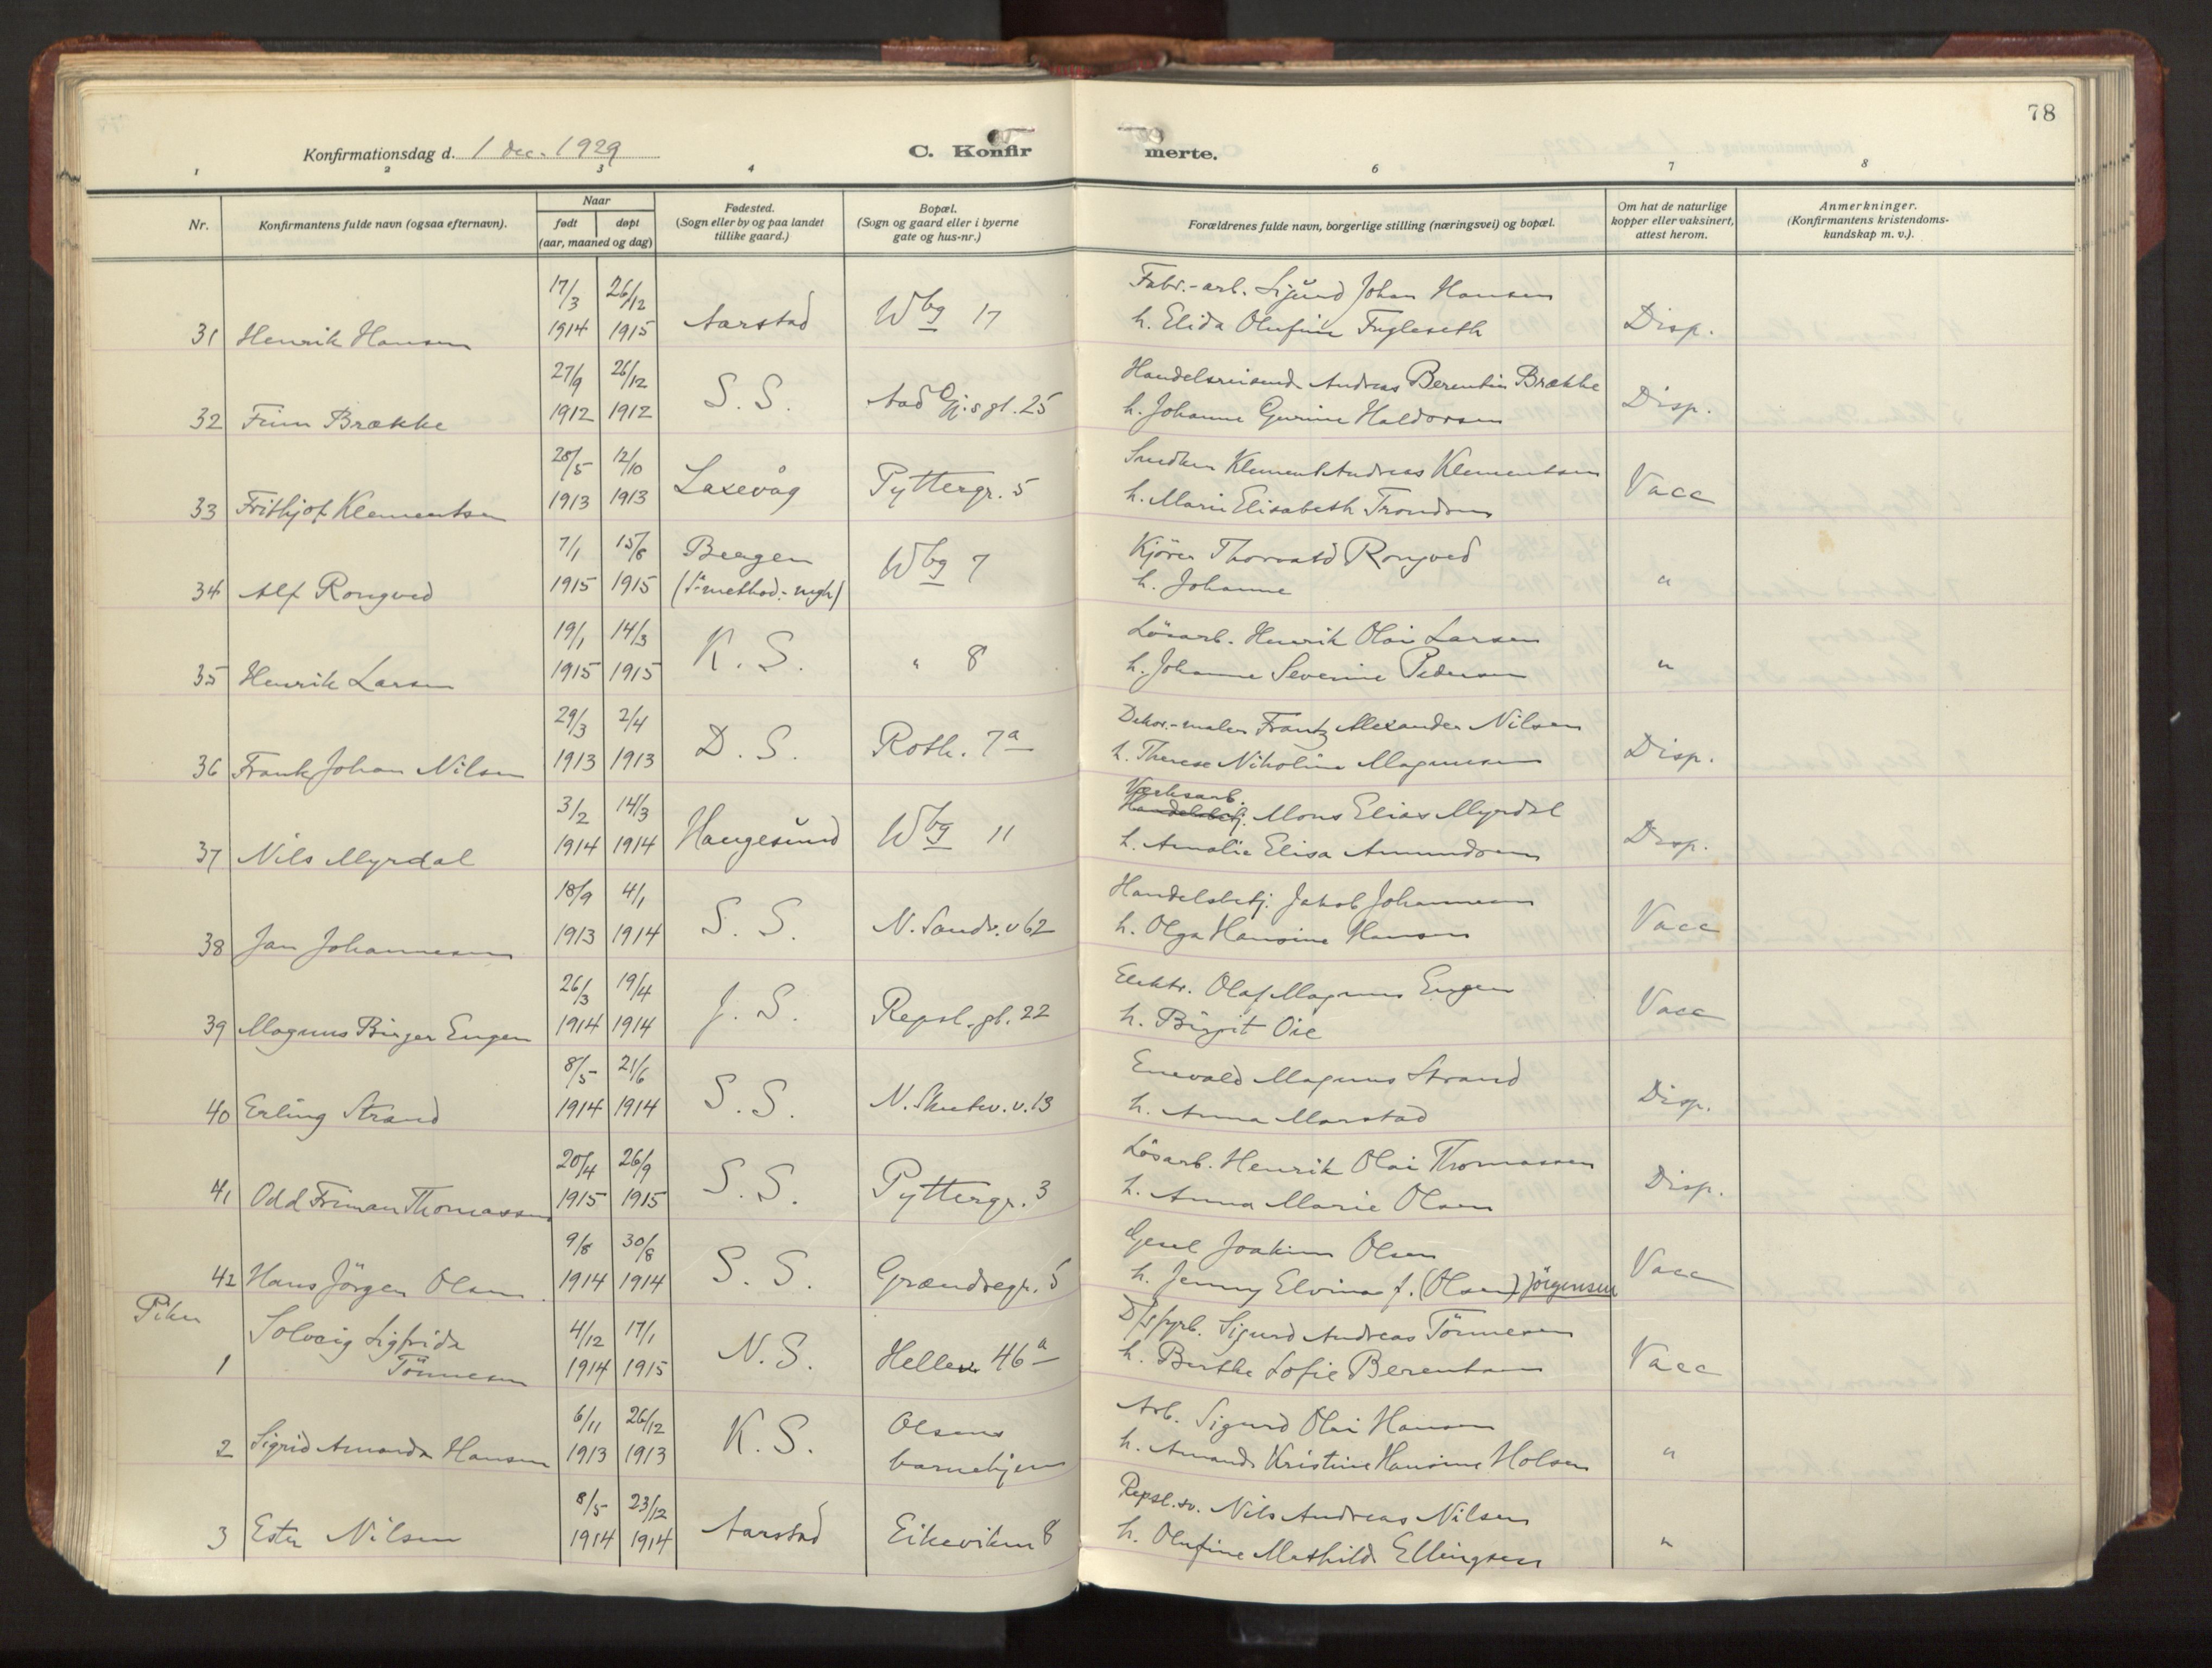 78
Konfirmationsdag d. 1 dec. 1929
C. Konfirmerte.
1 2 3 4 6 7 8
Nr.
Konfirmantens fulde navn (ogsaa efternavn).
Naar
født døpt
(aar, maaned og dag)
Fødested.
(Sogn eller by og paa landet
tillike gaard.)
Bopæl.
(Sogn og gaard eller i byerne
gate og hus-nr.)
Forældrenes fulde navn, borgerlige stilling (næringsvei) og bopæl.
Om hat de naturlige
kopper eller vaksinert,
attest herom.
Anmerkninger.
(Konfirmantens kristendoms-
kundskap m. v.).
17/3 26/12 Fabr.-arb. Sigurd Johan Hansen
31 Henrik Hansen 1914 1915 Aarstad Wbg 17 h. Elida Olufine Fugleseth Disp.
27/9 26/12 Handelsreisend Andreas Berentin Brække
32 Finn Brække 1912 1912 S. S. Aad Gj.s gt. 25 h. Johanne Gurine Haldorsen Disp.
28/5 12/10 Smeden Klement Andreas Klementsen
33 Frithjof Klementsen 1913 1913 Laxevåg Pyttergr. 5 h. Marie Elisabeth Trondsen Vacc
7/1 15/8 Bergen Kjører Thorvald Rongved
34 Alf Rongved 1915 1915 Wbg 7 h. Johanne "
19/1 14/3 Løsarb. Henrik Olai Larsen
35 Henrik Larsen 1915 1915 K. S. " 8 h. Johanne Severine Pedersen "
29/3 2/4 Dekor.-maler Frantz Alexander Nilsen
36 Frank Johan Nilsen 1913 1913 D. S. Roth. 7a h. Therese Nikoline Magnussen Disp.
3/2 14/3 Verksarb. Handelsbetj. Mons Elias Myrdal
37 Nils Myrdal 1914 1914 Haugesund Wbg 11 h. Amalie Elisa Amundsen Disp.
18/9 4/1 Handelsbetj. Jakob Johannesen
38 Jan Johannesen 1913 1914 S. S. N. Sandv. v 62 h. Olga Hansine Hansen Vacc
26/3 19/4 Elektr. Olaf Magnus Eugen
39 Magnus Birger Eugen 1914 1914 J. S. Repsl. gt. 22 h. Birgit Oie Vacc
8/5 21/6 Enevald Magnus Strand
40 Erling Strand 1914 1914 S. S. N. Skutev. v. 13 h. Anna Marstad Disp.
20/4 26/9 Løsarb. Henrik Olai Thomassen
41 Odd Friman Thomassen 1915 1915 S. S. Pyttergr. 3 h. Anna Marie Olsen Disp.
9/8 30/8 Joakim Olsen
42 Hans Jørgen Olsen 1914 1914 S. S. Grændsegr. 5 h. Jenny Elvina f. (Olsen) Jørgensen Vacc
Piker
Solveig Sigfrida 4/12 17/1 D/s fyrb. Sigurd Andreas Tønnesen
1 Tønnesen 1914 1915 N. S. Hellev. 46a h. Berthe Sofie Berentsen Vacc
6/11 26/12 Olsens Arb. Sigurd Olai Hansen
2 Sigrid Amanda Hansen 1913 1913 K. S. barnehjem h. Amanda Kristine Hansine Holsen "
8/5 23/12 Repsl.sv. Nils Andreas Nilsen
3 Ester Nilsen 1914 1914 Aarstad Eikeviken 8 h. Olufine Mathilde Ellingsen "